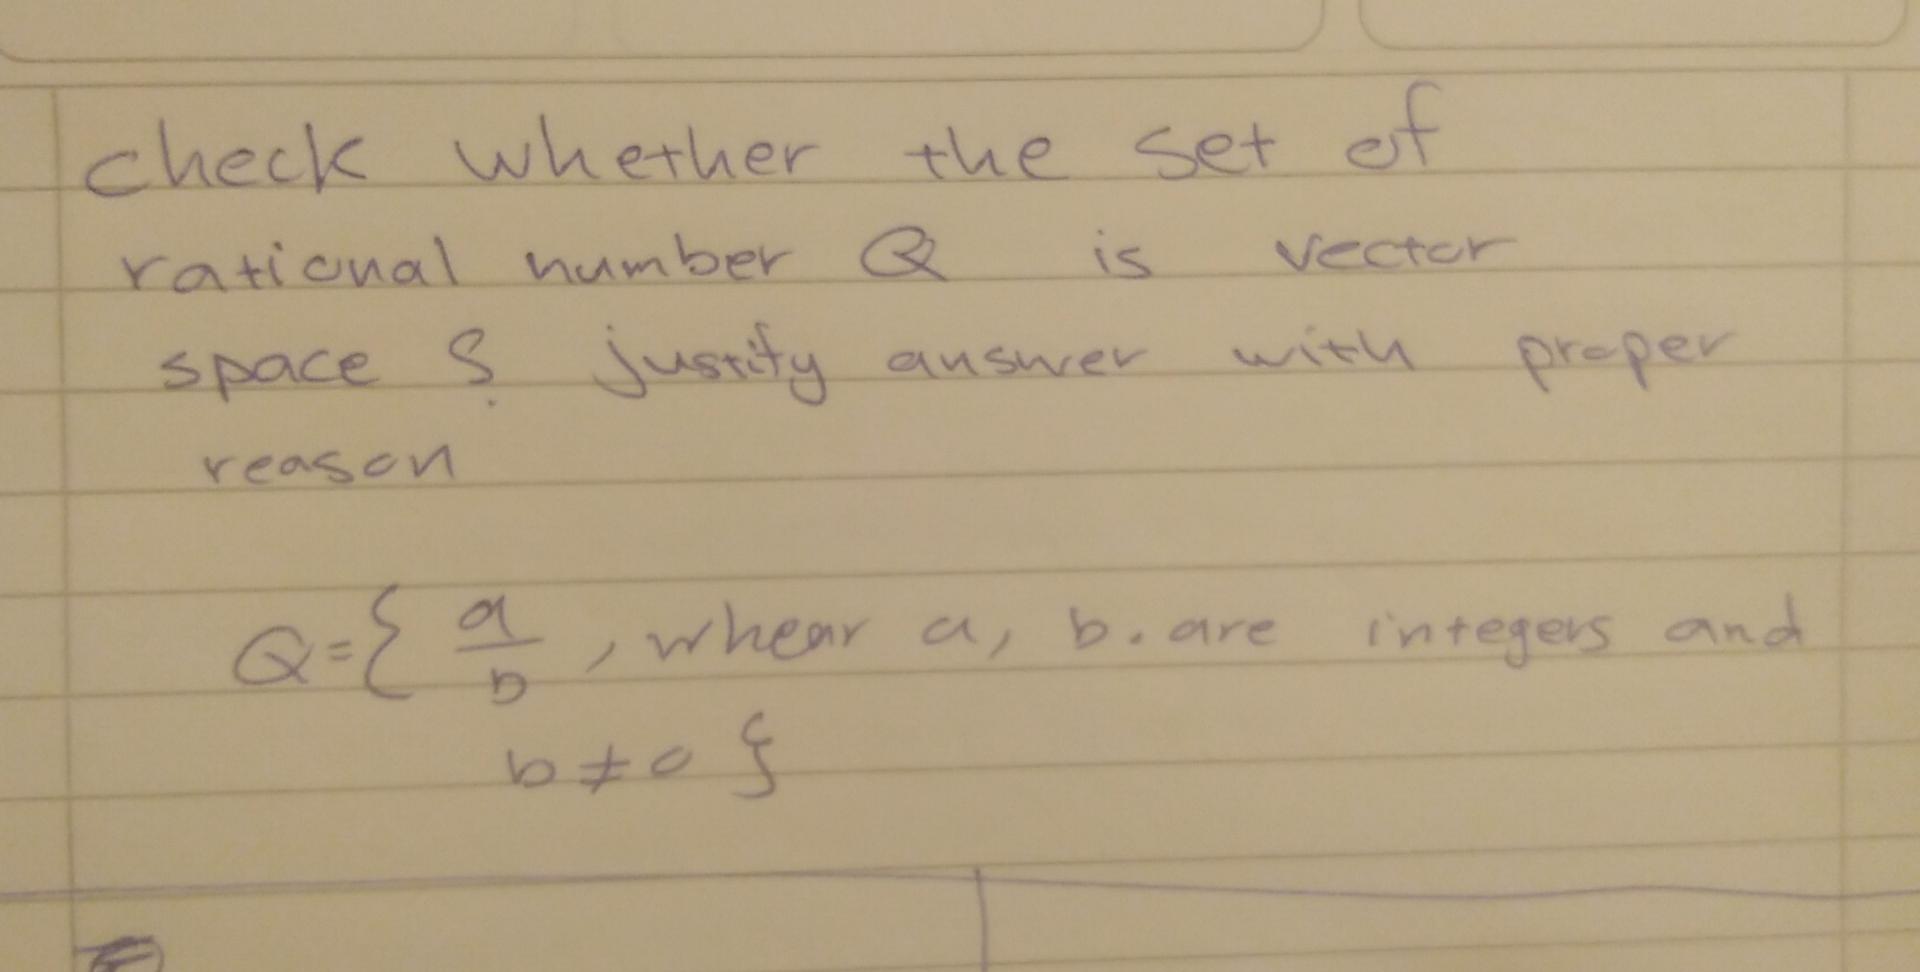 check whether the set of
rational number Q is vector
space ? justify answer with proper
reason
Q={ a/b , whear a, b. are integers and
b ≠ 0 }